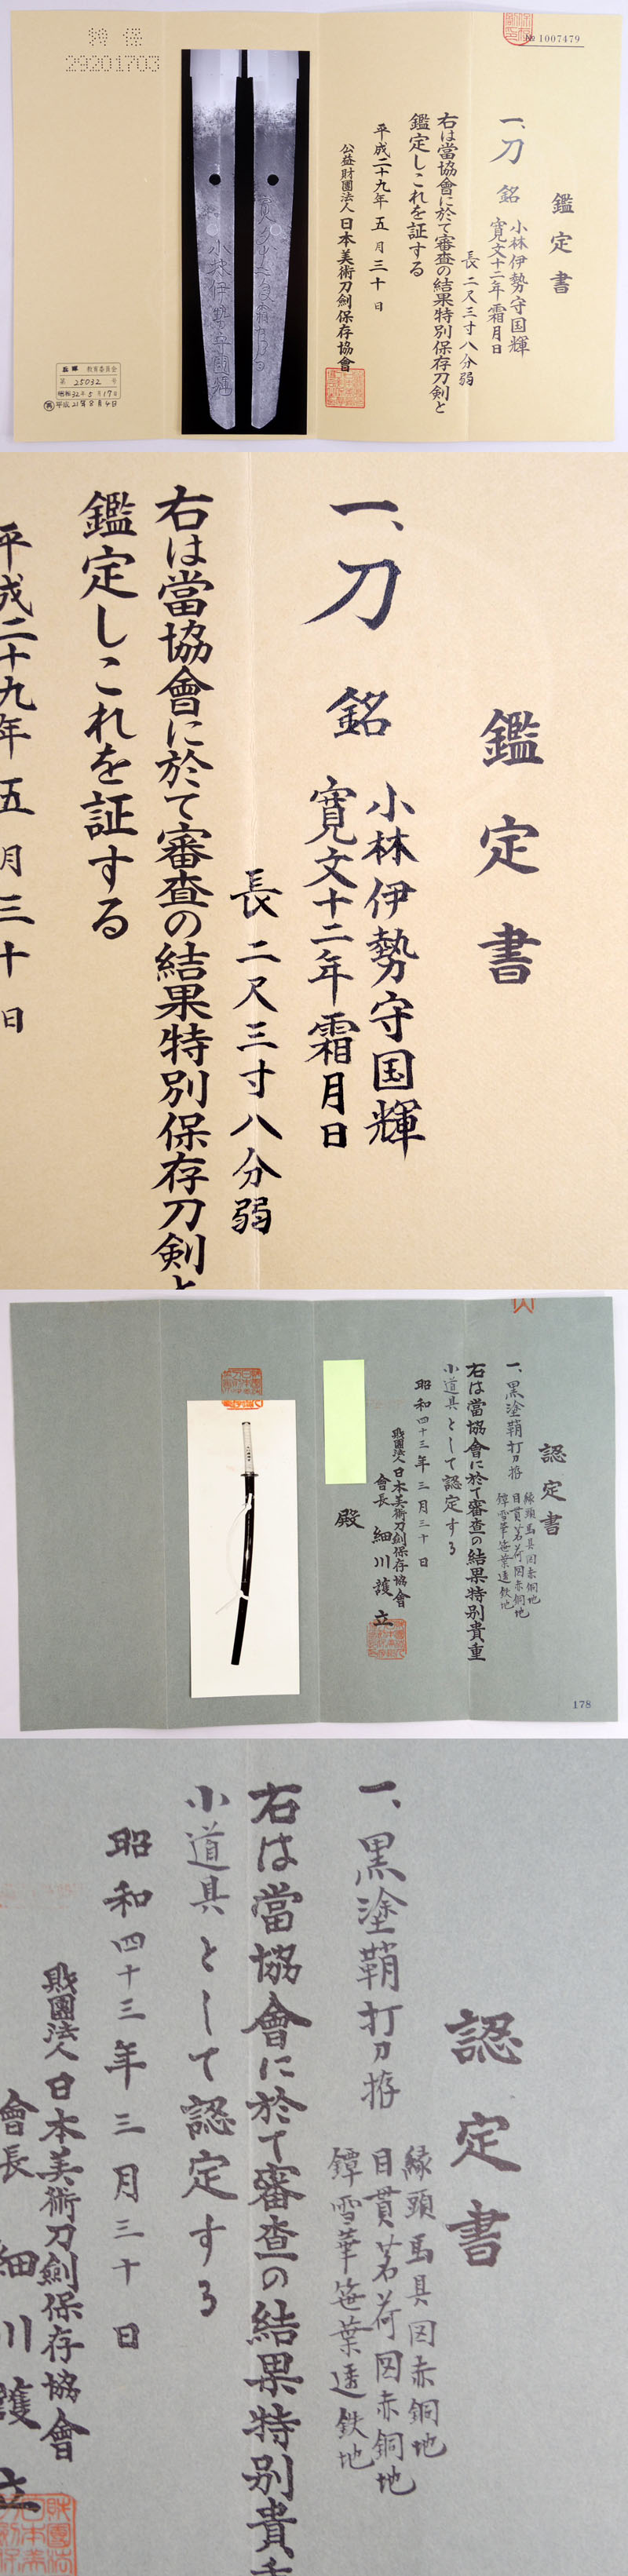 特保
29201703
№ 1007479
鑑定書
一、刀 銘 小林伊勢守国輝
寛文十二年霜月日
長 二尺三寸八分弱
右は當協會に於て審査の結果特別保存刀剣と
鑑定しこれを証する
平成二十九年 五 月 三十 日
公益財團法人 日本美術刀劍保存協會
教育委員会
第 25032 号
昭和32年5月17日
平成21年8月4日
鑑定書
一、刀 銘
小林伊勢守国輝
寛文十二年霜月日
長 二尺三寸八分弱
右は當協會に於て審査の結果特別保存刀剣と
鑑定しこれを証する
平成二十九年 五 月 三十 日
認定書
一、黒塗鞘打刀拵
縁頭馬具図赤銅地
目貫茗荷図赤銅地
鐔雪華笹葉透鉄地
右は當協會に於て審査の結果特別貴重
小道具として認定する
昭和四十三年 三 月 三十 日
財團法人 日本美術刀劍保存協會
會長 細川護立
殿
178
認定書
一、黒塗鞘打刀拵
縁頭馬具図赤銅地
目貫茗荷図赤銅地
鐔雪華笹葉透鉄地
右は當協會に於て審査の結果特別貴重
小道具として認定する
昭和四十三年 三 月 三十 日
財團法人 日本美術刀劍保存協會
會長 細川護立